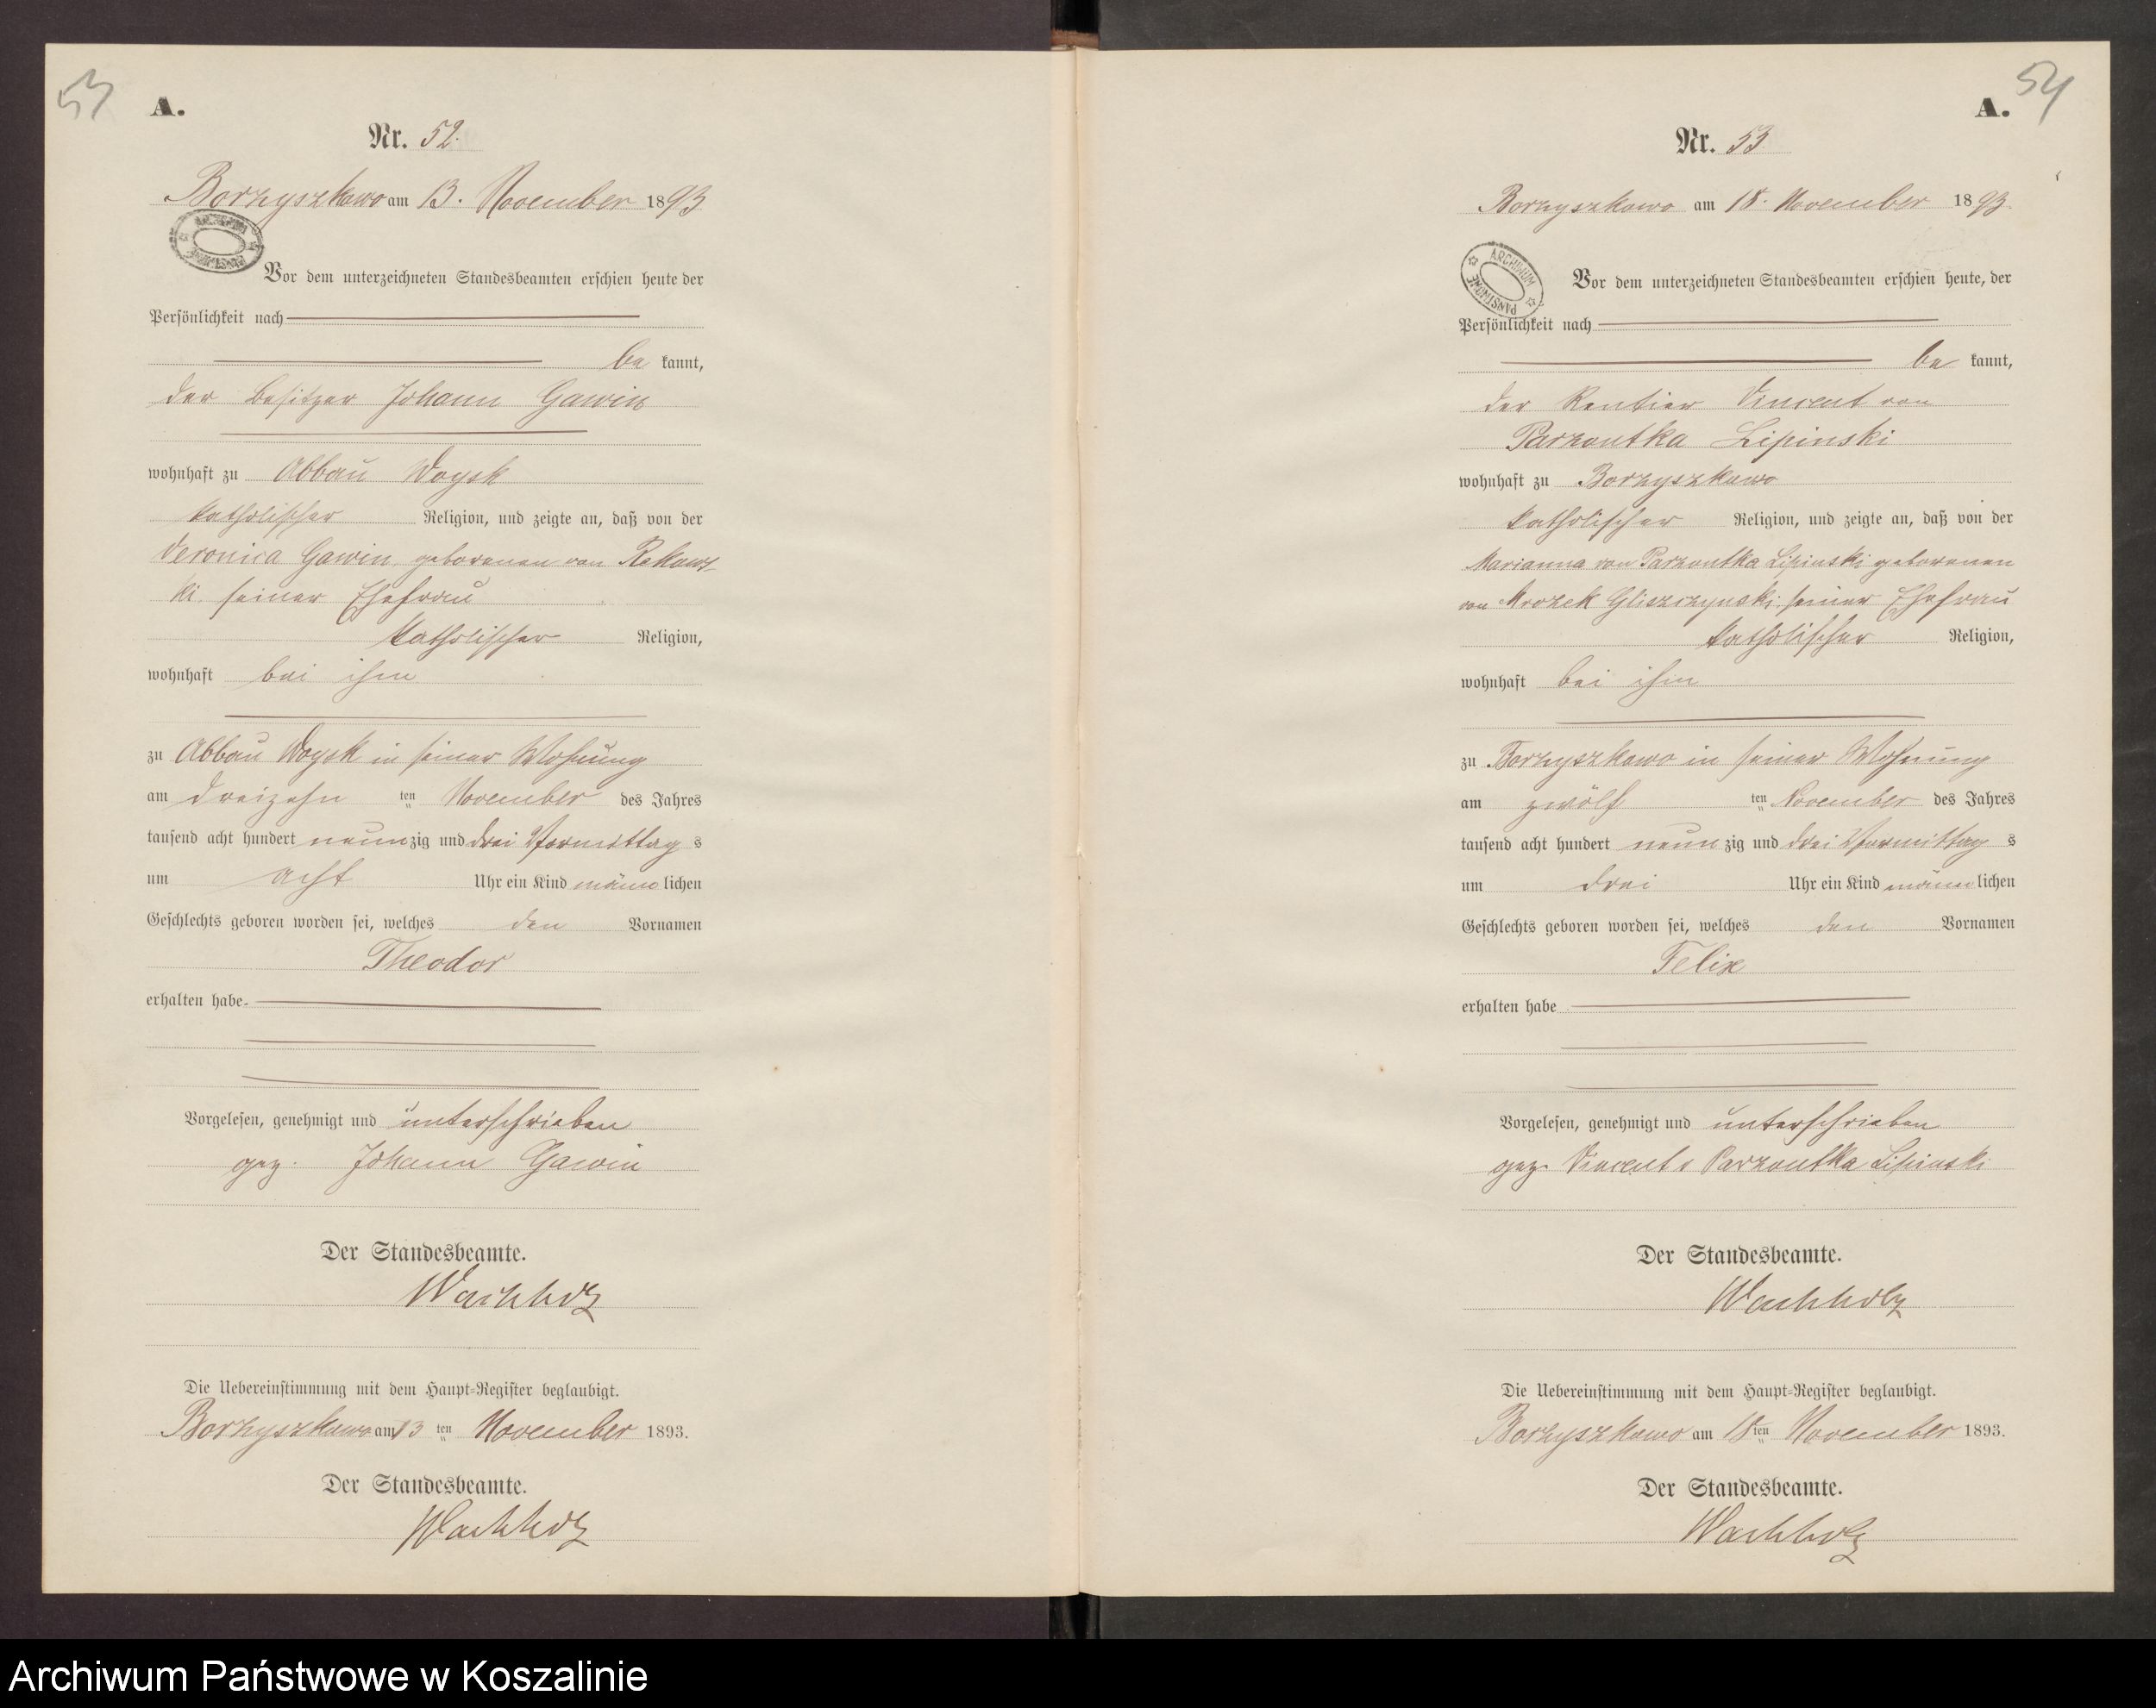 53
A.
Nr. 52.
Borzyszkowo am 13. November 1893
ARCHIWUM PAŃSTWOWE
Vor dem unterzeichneten Standesbeamten erschien heute der
Persönlichkeit nach
be kannt,
der Besitzer Johann Gawin
wohnhaft zu Abbau Woysk
katholischer Religion, und zeigte an, daß von der
Veronica Gawin geborenen von Rekows-
ki seiner Ehefrau
katholischer Religion,
wohnhaft bei ihm
zu Abbau Woysk in seiner Wohnung
am dreizehn ten November des Jahres
tausend acht hundert neunzig und drei Vormittag s
um acht Uhr ein Kind männlichen
Geschlechts geboren worden sei, welches den Vornamen
Theodor
erhalten habe.
Vorgelesen, genehmigt und unterschrieben
gez. Johann Gawin
Der Standesbeamte.
Wachholz
Die Uebereinstimmung mit dem Haupt-Register beglaubigt.
Borzyszkowo am 13 ten November 1893.
Der Standesbeamte.
Wachholz
54
A.
Nr. 53
Borzyszkowo am 18. November 1893.
ARCHIWUM PAŃSTWOWE
Vor dem unterzeichneten Standesbeamten erschien heute, der
Persönlichkeit nach
be kannt,
der Rentier Vincent von
Parzontka Lipinski
wohnhaft zu Borzyszkowo
katholischer Religion, und zeigte an, daß von der
Marianna von Parzontka Lipinski geborenen
von Mrozek Gliszczynski seiner Ehefrau
katholischer Religion,
wohnhaft bei ihm
zu Borzyszkowo in seiner Wohnung
am zwölf ten November des Jahres
tausend acht hundert neunzig und drei Vormittag s
um drei Uhr ein Kind männlichen
Geschlechts geboren worden sei, welches den Vornamen
Felix
erhalten habe
Vorgelesen, genehmigt und unterschrieben
gez. Vincent v Parzontka Lipinski
Der Standesbeamte.
Wachholz
Die Uebereinstimmung mit dem Haupt-Register beglaubigt.
Borzyszkowo am 18 ten November 1893.
Der Standesbeamte.
Wachholz
Archiwum Państwowe w Koszalinie